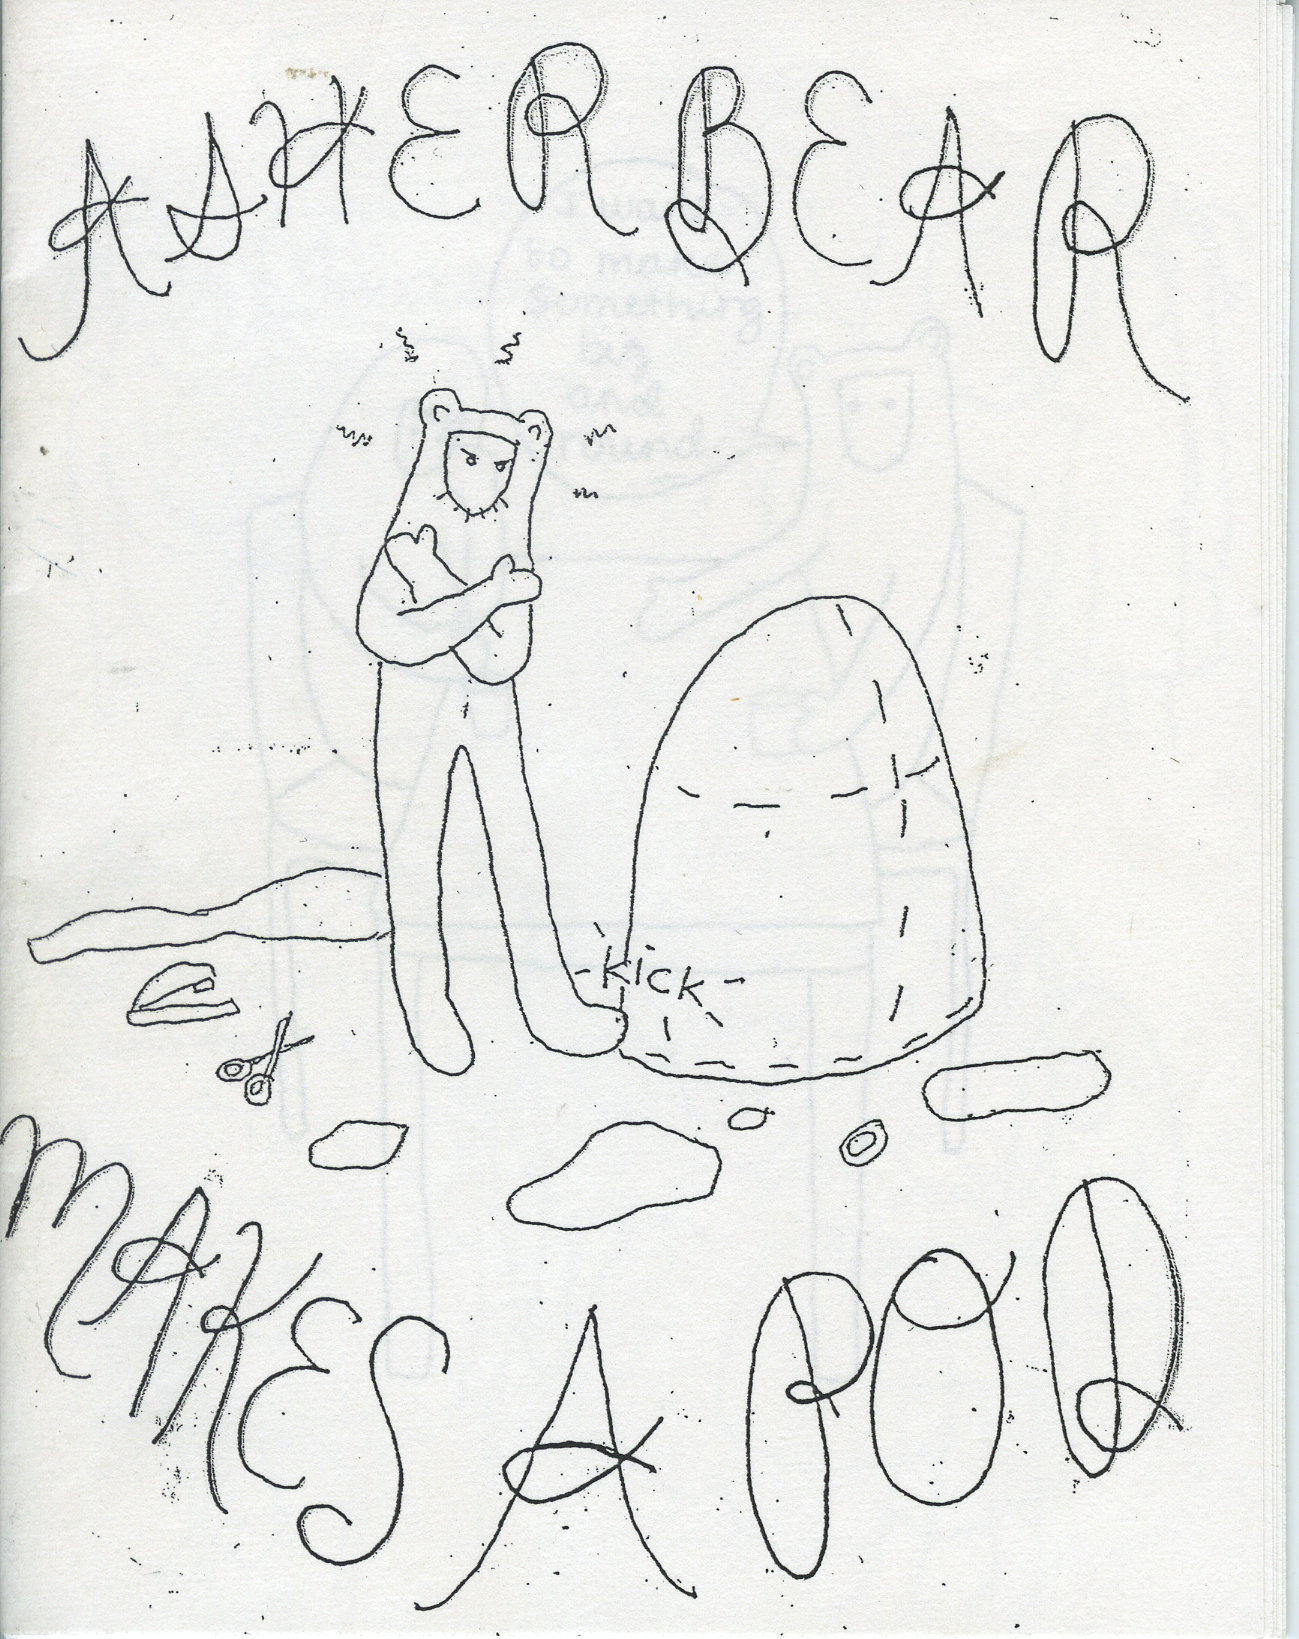 ASHER BEAR
-kick-
MAKES A POD
I want
to make
something
big
and
round